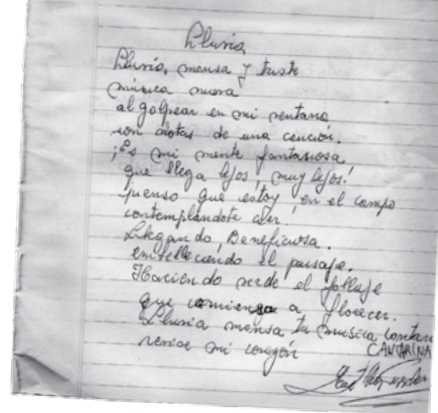 Lluvia
Lluvia, mansa y triste
música nueva
al golpear en mi ventana
son notas de una canción.
¡Es mi mente fantasiosa
que llega lejos, muy lejos!
pienso que estoy en el campo
contemplándote caer
Llegando, Beneficiosa.
embelleciendo el paisaje.
Haciendo verde el follaje
que comienza a florecer.
Lluvia mansa tu musica cantan
CANTARINA
revive mi corazón